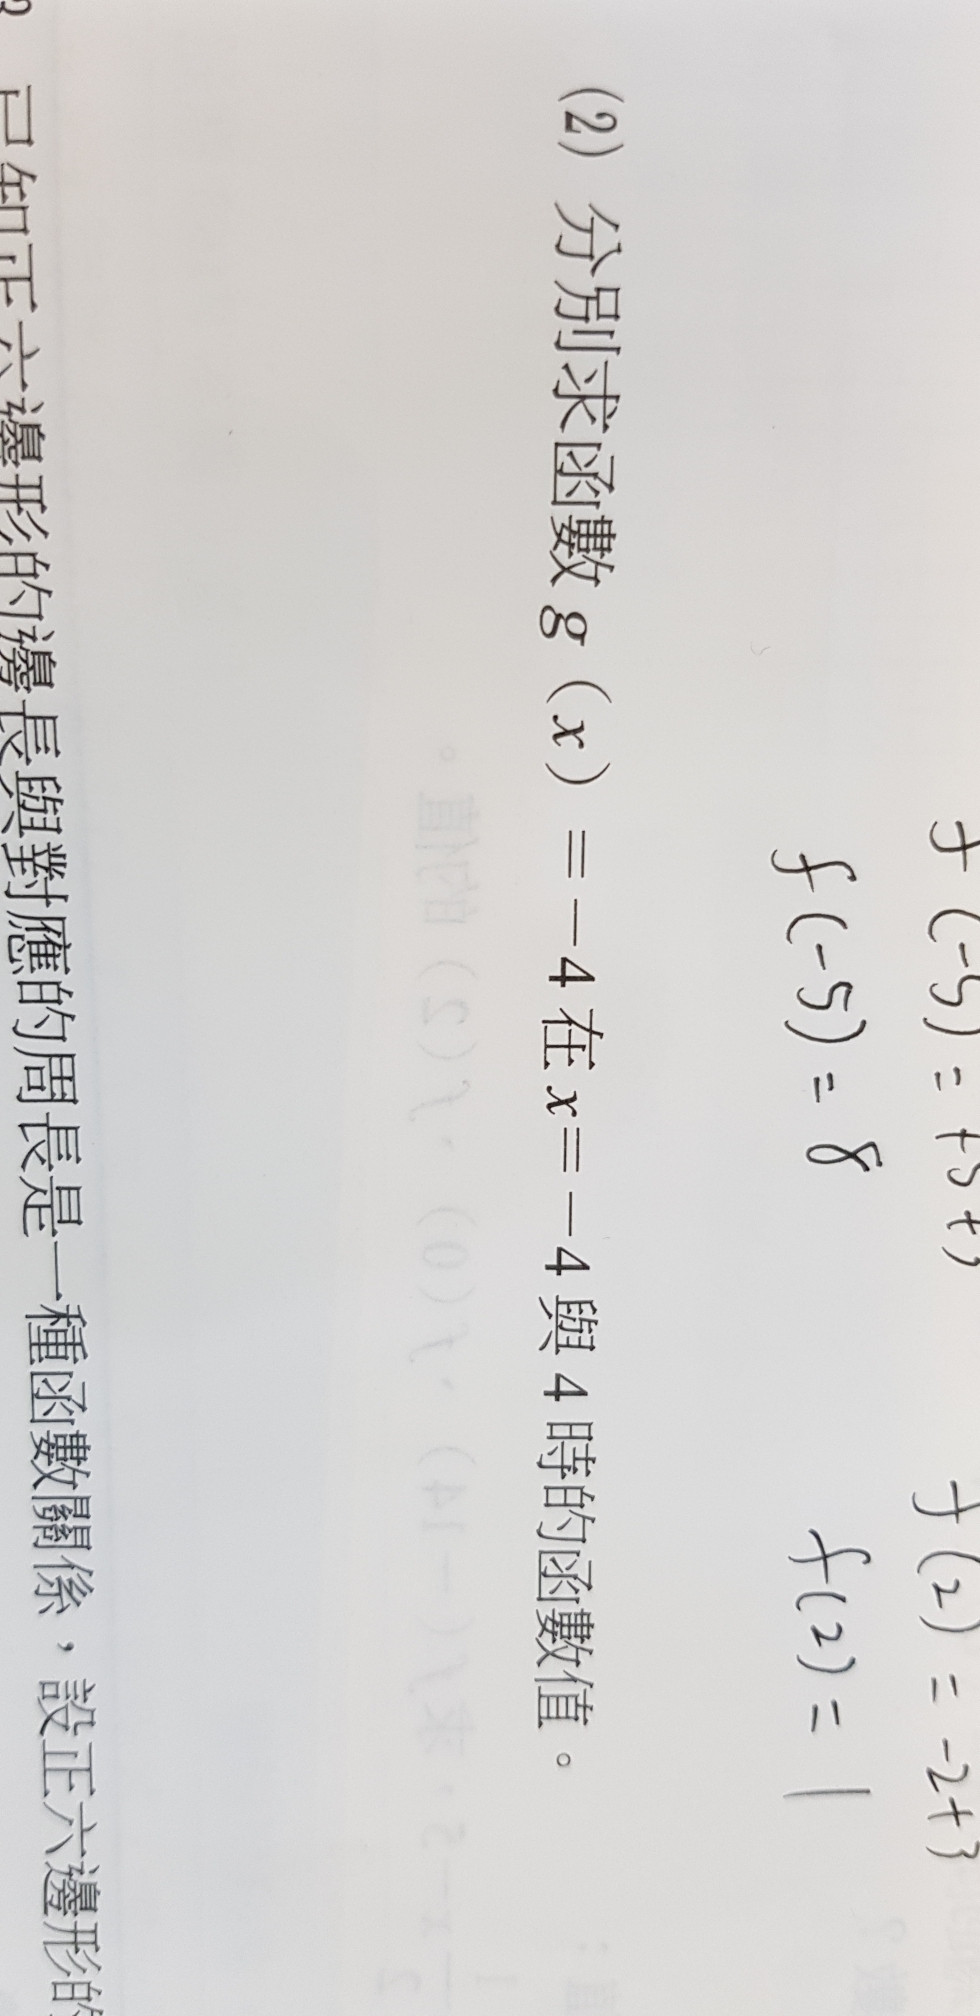 f(-5) = +5+3 f(2) = -2+3
f(-5) = 8 f(2) = 1
(2) 分別求函數 g（x）＝−4 在 x＝−4 與 4 時的函數值。
已知正六邊形的邊長與對應的周長是一種函數關係，設正六邊形的